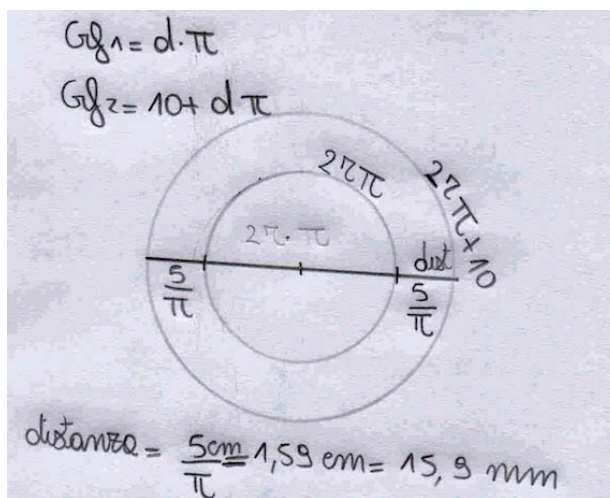 Crf1 = d·π
Crf2 = 10 + dπ
2rπ
2rπ + 10
2r·π
dist
5/π
5/π
distanza = 5cm/π = 1,59 cm = 15,9 mm